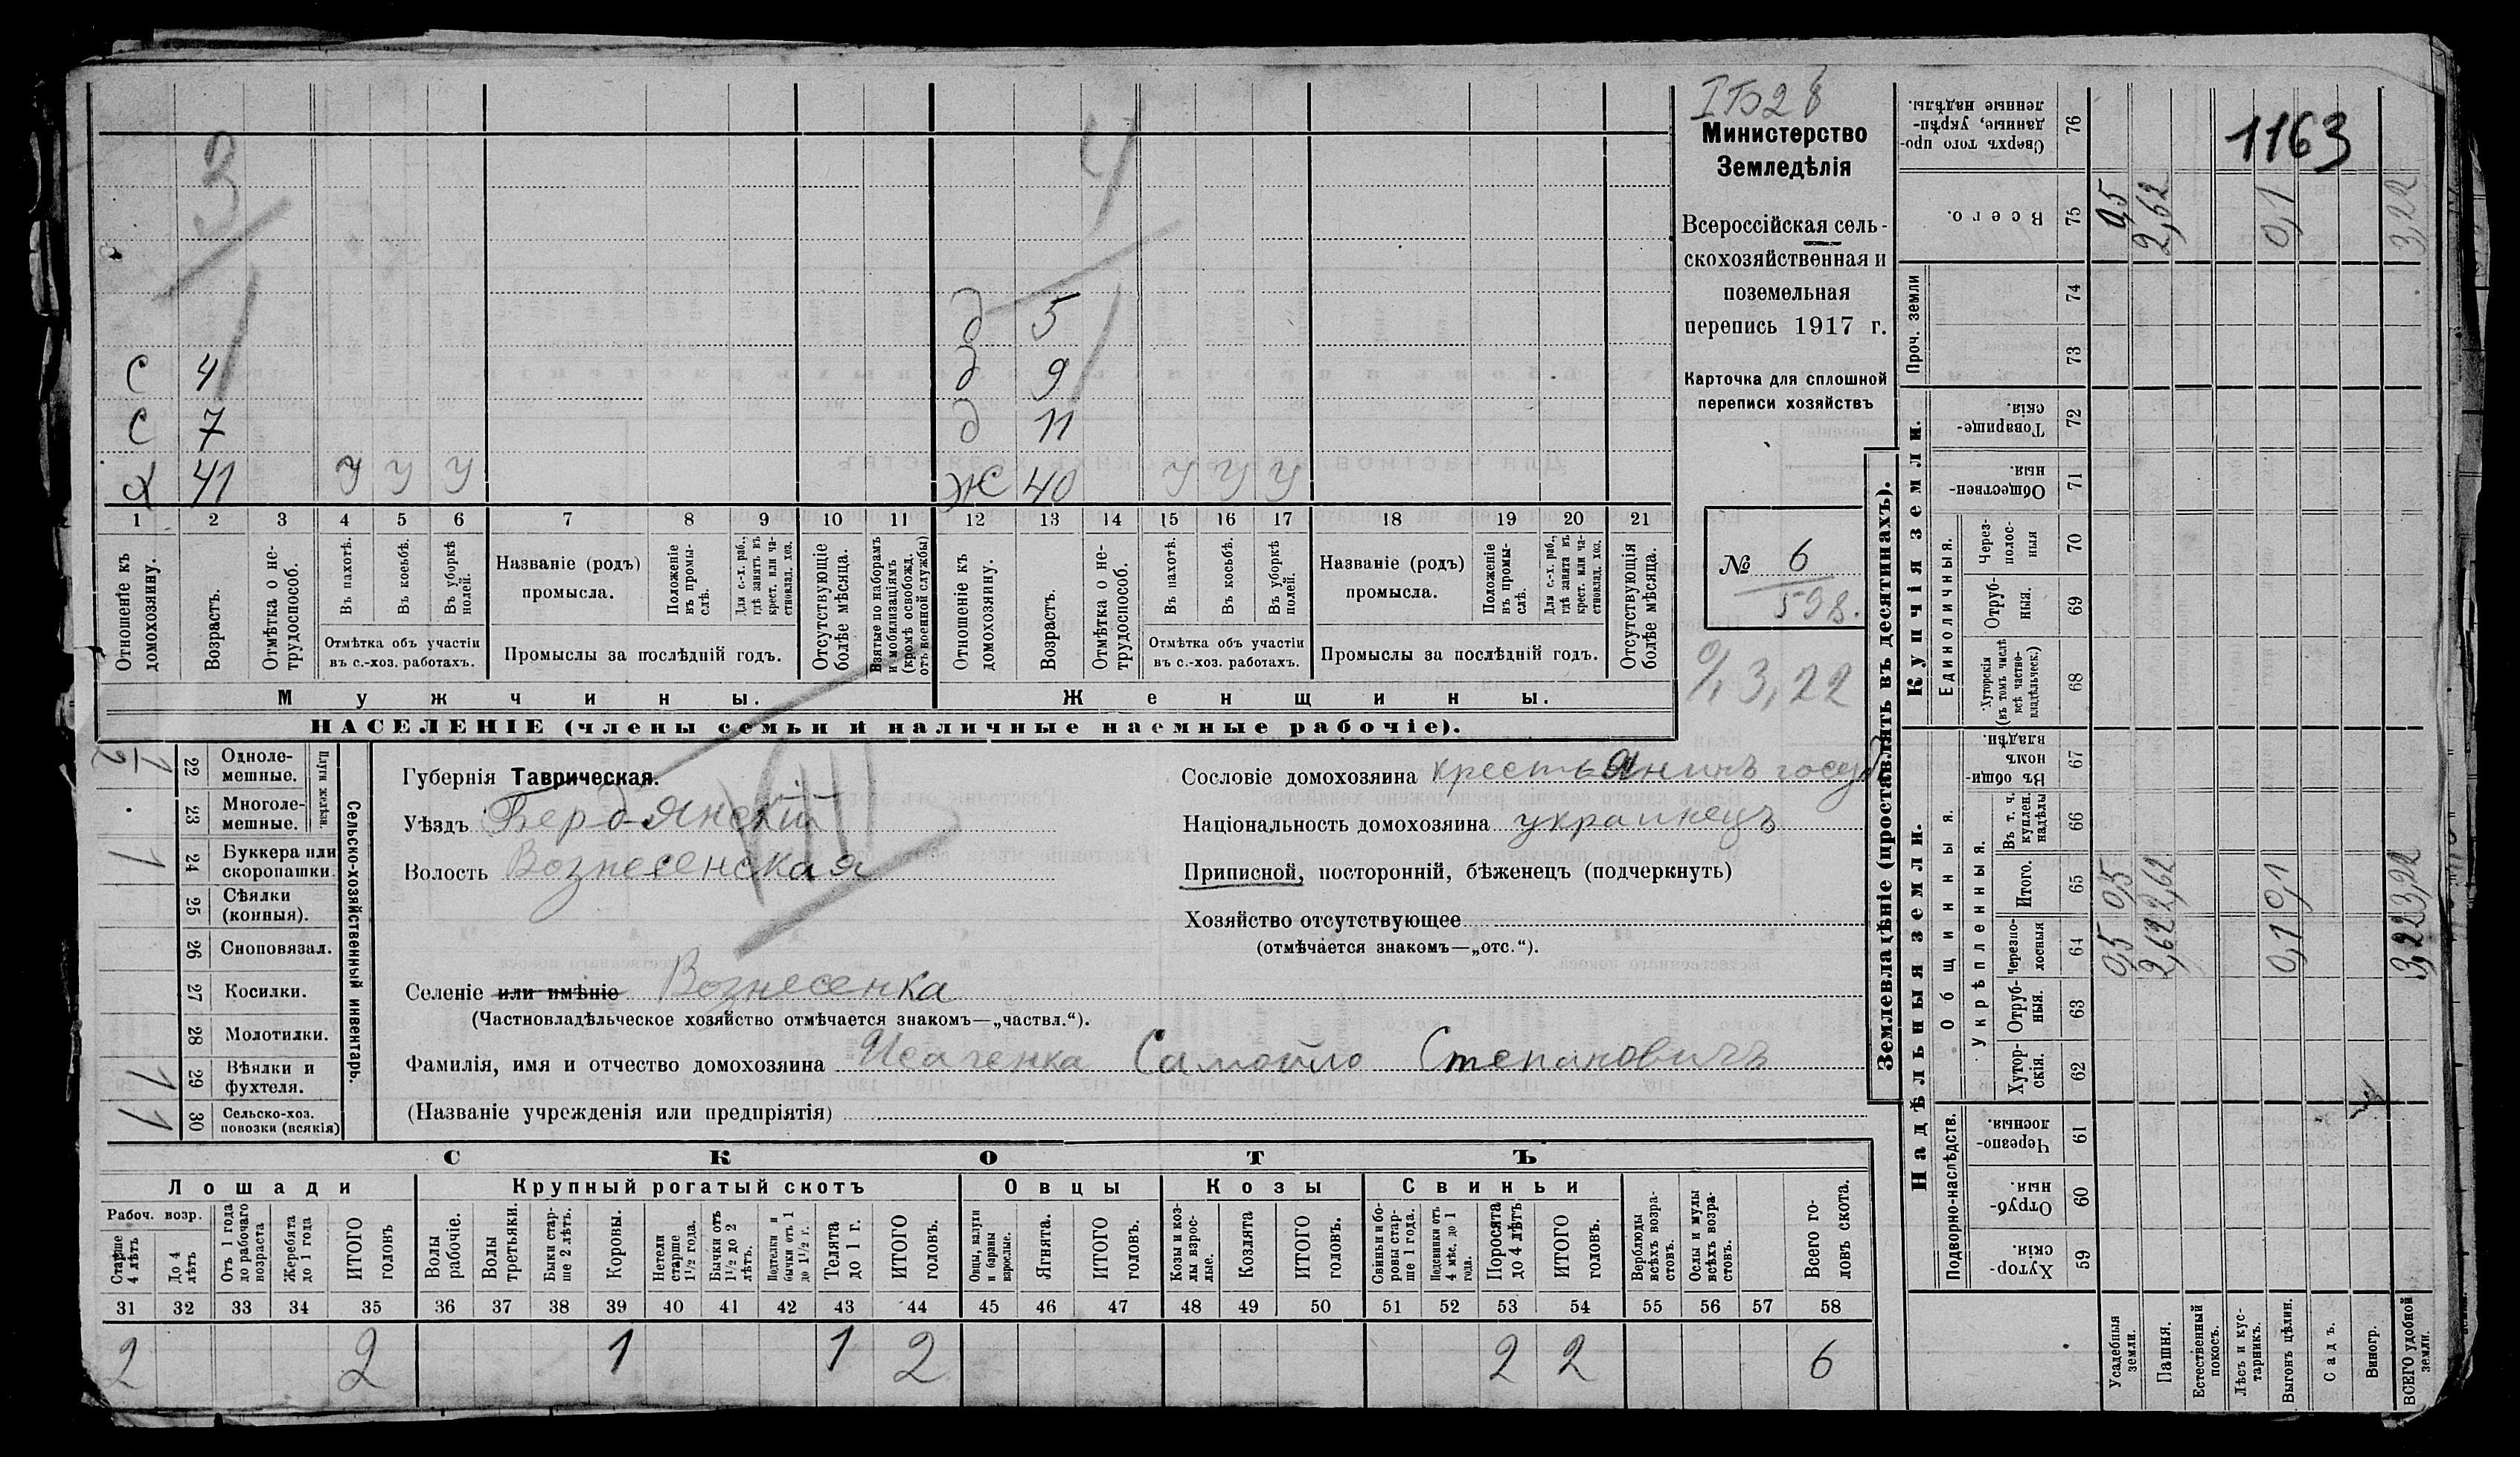 Министерство
Земледѣлія
Всероссійская сель-
скохозяйственная и
поземельная
перепись 1917 г.
Карточка для сплошной
переписи хозяйствъ
№ 6
598.
3,22
1163
д 5
С 4 д 9
С 7 д 11
х 41 У У У Ж 40 У У У
1 2 3 4 5 6 7 8 9 10 11 12 13 14 15 16 17 18 19 20 21
Отношеніе къ домохозяину.
Возрастъ.
Отмѣтка о не-трудоспособ.
Въ пахотѣ.
Въ косьбѣ.
Въ уборкѣ полей.
Отмѣтка объ участіи
въ с.-хоз. работахъ.
Названіе (родъ)
промысла.
Положеніе въ промы-слѣ.
Для с.-х. раб., гдѣ занятъ въ крест. или ча-стновлад. хоз.
Промыслы за послѣдній годъ.
Отсутствующіе болѣе мѣсяца.
Взятые по наборамъ и мобилизаціямъ (кромѣ освобожд. отъ военной службы)
Отношеніе къ домохозяину.
Возрастъ.
Отмѣтка о не-трудоспособ.
Въ пахотѣ.
Въ косьбѣ.
Въ уборкѣ полей.
Отмѣтка объ участіи
въ с.-хоз. работахъ.
Названіе (родъ)
промысла.
Положеніе въ промы-слѣ.
Для с.-х. раб., гдѣ занята въ крест. или ча-стновлад. хоз.
Промыслы за послѣдній годъ.
Отсутствующія болѣе мѣсяца.
Мужчины. Женщины.
НАСЕЛЕНІЕ (члены семьи и наличные наемные рабочіе).
Сельско-хозяйственный инвентарь.
Плуги желѣзн.
22 Одноле-мешные.
23 Многоле-мешные.
1 24 Буккера или скоропашки
25 Сѣялки (конныя).
26 Сноповязал.
27 Косилки.
28 Молотилки.
1 29 Вѣялки и фухтеля.
1 30 Сельско-хоз. повозки (всякія)
Губернія Таврическая.
Уѣздъ Бердянскій
Волость Вознесенская
Селеніе или имѣніе Вознесенка
(Частновладѣльческое хозяйство отмѣчается знакомъ—„частвл.“).
Фамилія, имя и отчество домохозяина Исаченка Самойло Степановичъ
(Названіе учрежденія или предпріятія)
Сословіе домохозяина крестьянинъ госуд
Національность домохозяина украинецъ
Приписной, посторонній, бѣженецъ (подчеркнуть)
Хозяйство отсутствующее
(отмѣчается знакомъ—„отс.“).
СКОТЪ
Лошади Крупный рогатый скотъ Овцы Козы Свиньи
Рабоч. возр.
Старше 4 лѣтъ
До 4 лѣтъ
Отъ 1 года до рабочаго возраста
Жеребята до 1 года
ИТОГО головъ
Волы рабочіе.
Волы третьяки.
Быки стар-ше 2 лѣтъ.
Коровы.
Нетели старше 1½ года.
Бычки отъ 1½ до 2 лѣтъ.
Подтелки и бычки отъ 1 до 1½ г.
Телята до 1 г.
ИТОГО головъ.
Овцы, валухи и бараны взрослые.
Ягнята.
ИТОГО головъ.
Козы и коз-лы взрос-лые.
Козлята
ИТОГО головъ.
Свиньи и бо-ровы стар-ше 1 года.
Подсвинки отъ 4 мѣс. до 1 года.
Поросята до 4 лѣтъ
ИТОГО головъ.
Верблюды всѣхъ возра-стовъ.
Ослы и мулы всѣхъ возра-стовъ.
Всего го-ловъ скота.
31 32 33 34 35 36 37 38 39 40 41 42 43 44 45 46 47 48 49 50 51 52 53 54 55 56 57 58
2 2 1 1 2 2 2 6
Землевладѣніе (проставлять въ десятинахъ).
Надѣльныя земли. Купчія земли. Проч. земли
Подворно-наслѣдств.
Общинныя.
Укрѣпленныя.
Единоличныя.
59 Хутор-скія.
60 Отруб-ныя.
61 Черезпо-лосныя.
62 Хутор-скія.
63 Отруб-ныя.
64 Черезпо-лосныя
65 Итого.
66 Въ т. ч. куплен. надѣлы
67 Въ общи-номъ владѣн.
68 Хуторскія (въ томъ числѣ всѣ частно-владѣльческ.)
69 Отруб-ныя.
70 Через-полос-ныя
71 Обществен-ныя.
72 Товарище-скія.
73
74
75 Всего.
76 Сверхъ того про-данные, укрѣп-ленные надѣлы.
Усадебныя земли. 0,5 0,5 0,5
Пашня. 2,62 2,62 2,62
Естественный покосъ.
Лѣсъ и кус-тарникъ.
Выгонъ цѣлин. 0,1 0,1 0,1
Садъ.
Виногр.
ВСЕГО удобной земли. 3,22 3,22 3,22